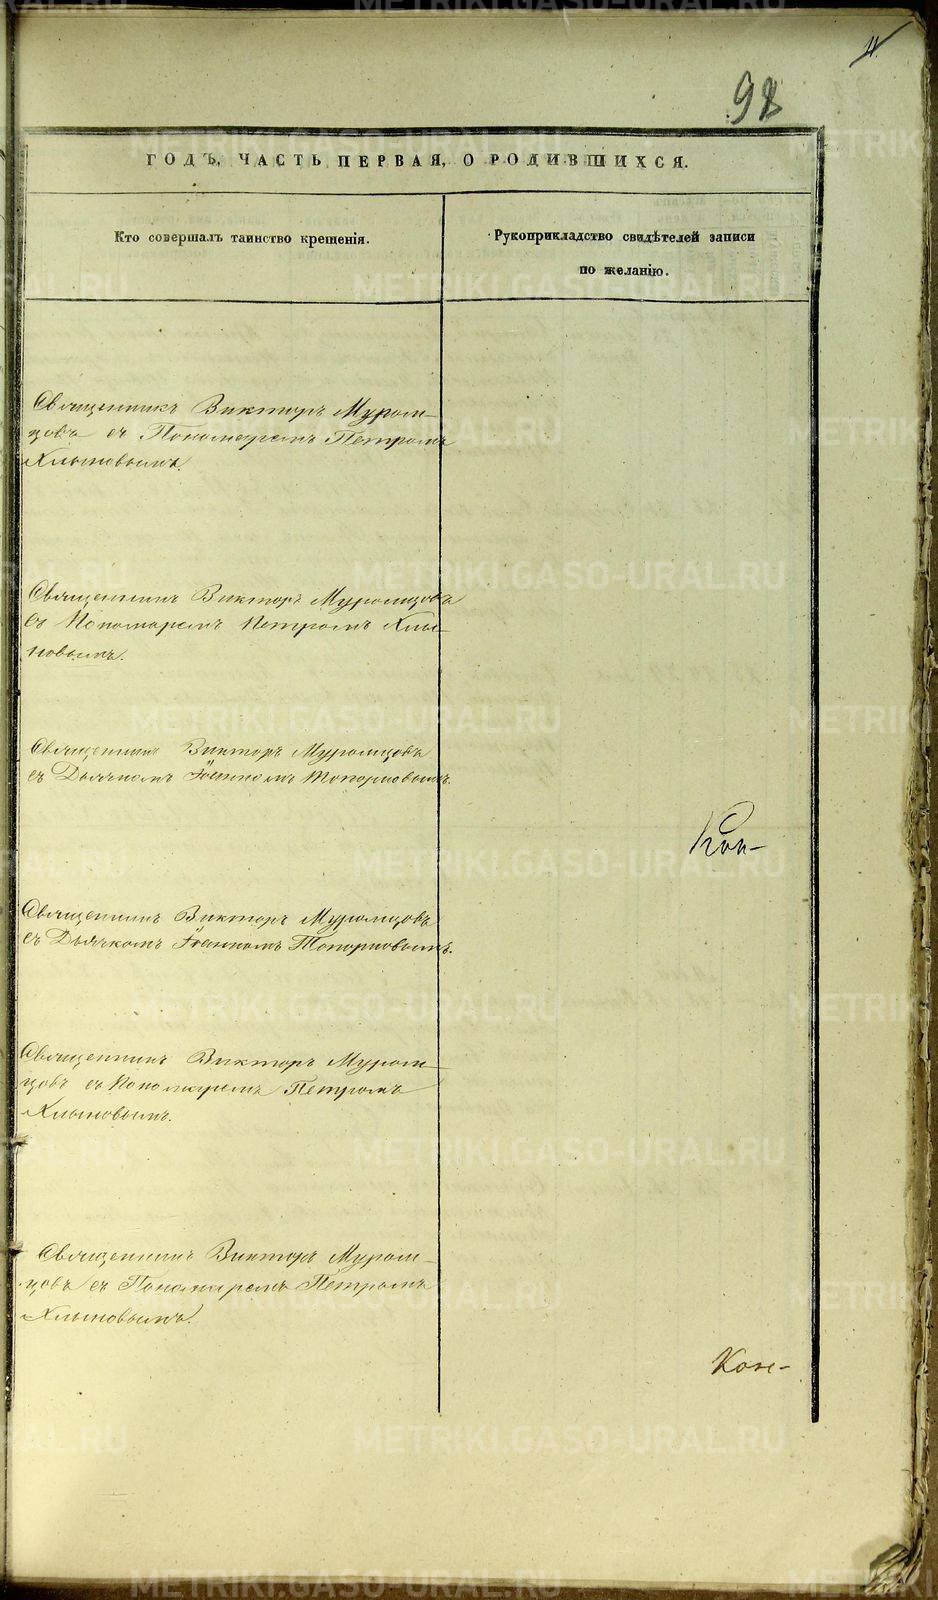 11.
98
ГОДЪ, ЧАСТЬ ПЕРВАЯ, О РОДИВШИХСЯ.
Кто совершалъ таинство крещенія.
Рукоприкладство свидѣтелей записи
по желанію.
Священникъ Викторъ Муром-
цовъ съ Пономаремъ Петромъ
Хлыновымъ.
Священникъ Викторъ Муромцовъ
съ Пономаремъ Петромъ Хлы-
новымъ.
Священникъ Викторъ Муромцовъ
съ Дьячкомъ Іоанномъ Топорковымъ.
Священникъ Викторъ Муромцовъ
съ Дьячкомъ Іоанномъ Топорковымъ.
Священникъ Викторъ Муром-
цовъ съ Пономаремъ Петромъ
Хлыновымъ.
Священникъ Викторъ Муром-
цовъ съ Пономаремъ Петромъ
Хлыновымъ.
METRIKI.GASO-URAL.RU